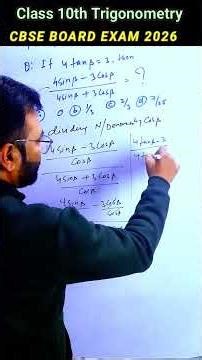 Class 10th Trigonometry
CBSE BOARD EXAM 2026
Q: If 4 tanβ = 3, then
4sinβ - 3cosβ = ?
4sinβ + 3cosβ
0 (b) 1/3 (c) 2/3 (d)
dividing N/Denominator Cosβ
4sinβ - 3cosβ
Cosβ
4sinβ + 3cosβ
Cosβ
4sinβ - 3cosβ
Cosβ
4tanβ - 3